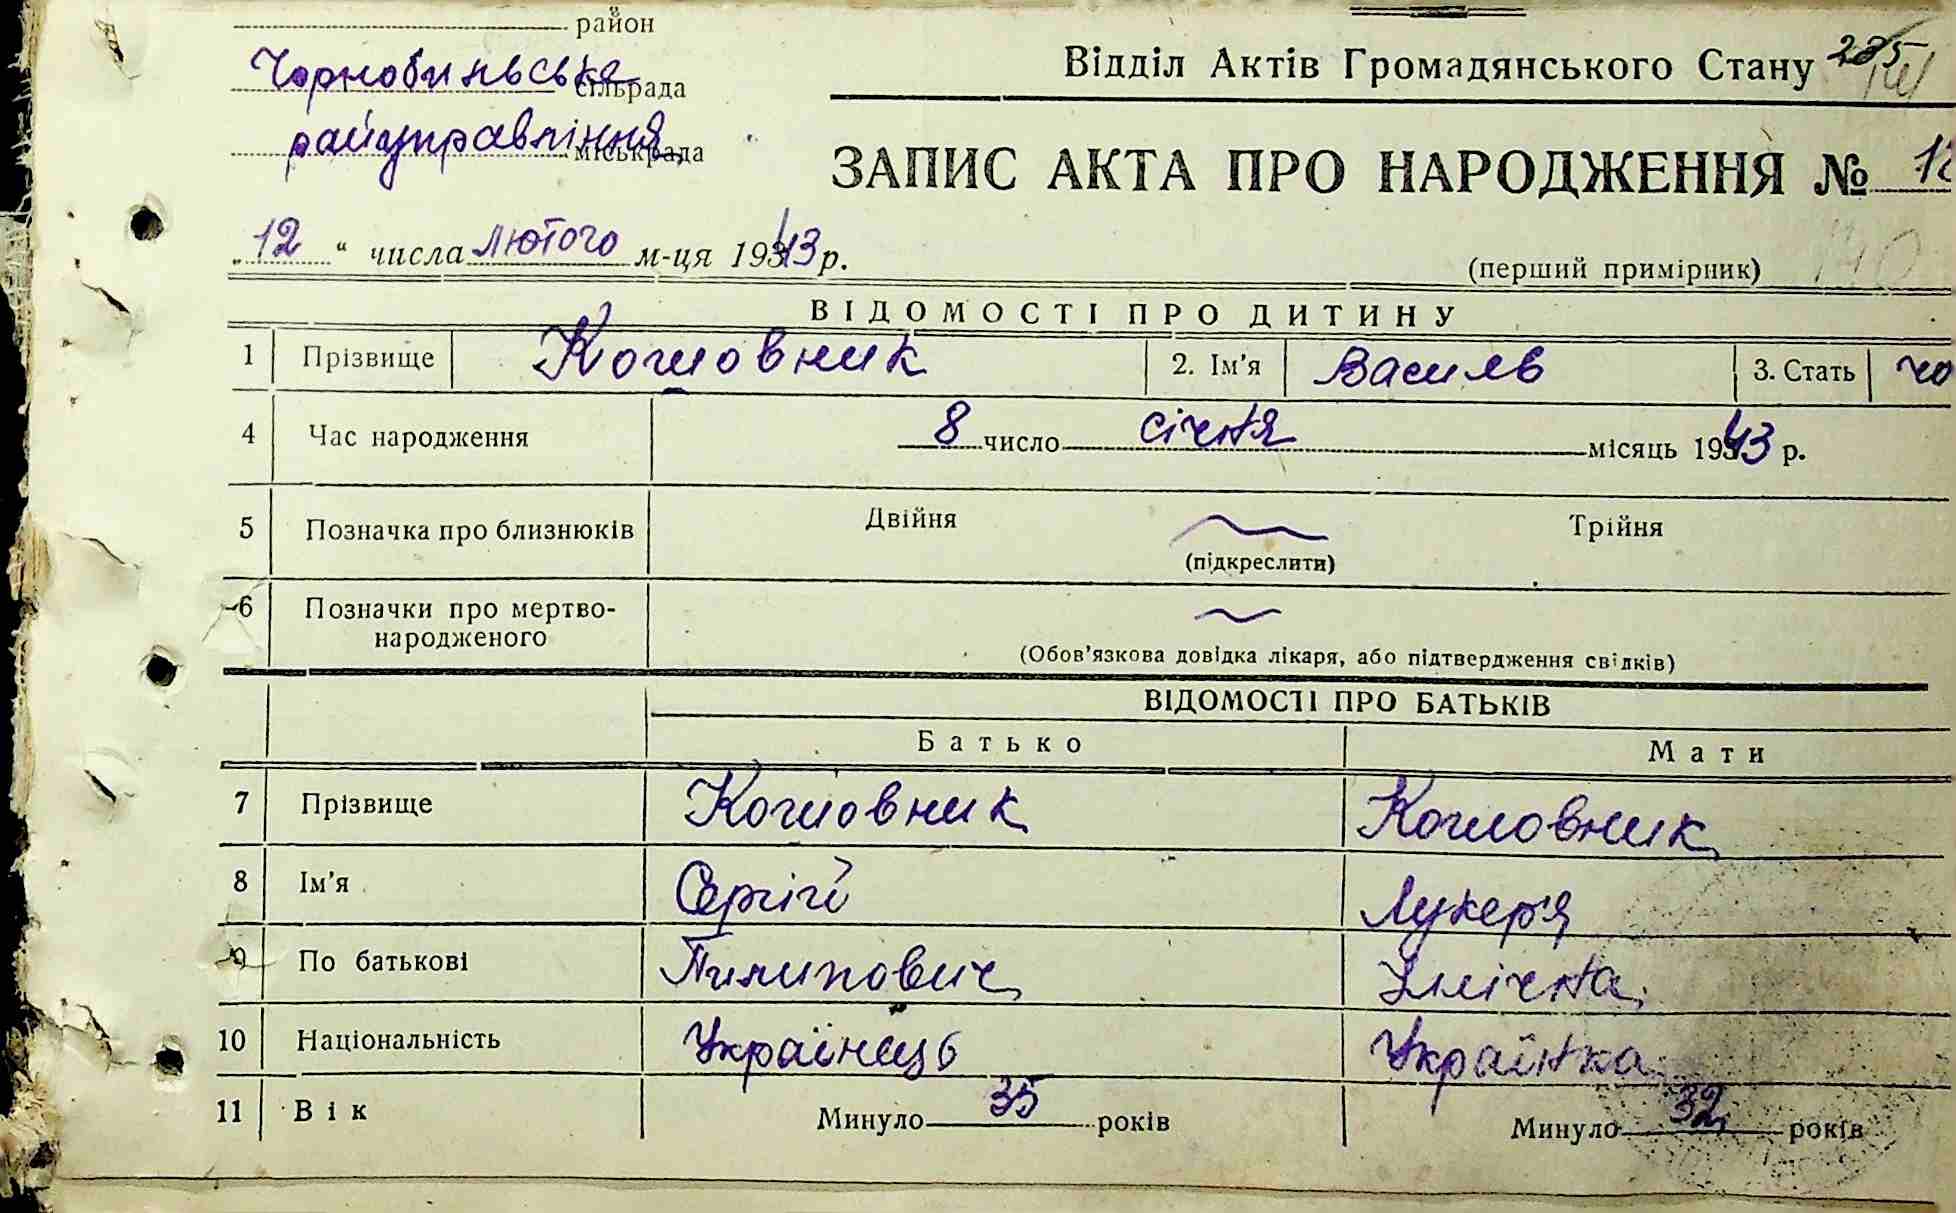 район
Чорнобильське сільрада
райуправління міськрада
Відділ Актів Громадянського Стану 235
ЗАПИС АКТА ПРО НАРОДЖЕННЯ № 12
„12“ числа лютого м-ця 1943 р.
(перший примірник) 140
ВІДОМОСТІ ПРО ДИТИНУ
1 Прізвище Кошовник 2. Ім'я Василь 3. Стать чо
4 Час народження 8 число січня місяць 1943 р.
5 Позначка про близнюків Двійня (підкреслити) Трійня
6 Позначки про мертво-
народженого
(Обов'язкова довідка лікаря, або підтвердження свідків)
ВІДОМОСТІ ПРО БАТЬКІВ
Батько Мати
7 Прізвище Кошовник Кошовник
8 Ім'я Сергій Лукер'я
9 По батькові Пилипович Іллічна
10 Національність Українець Українка
11 Вік Минуло 35 років Минуло 32 років